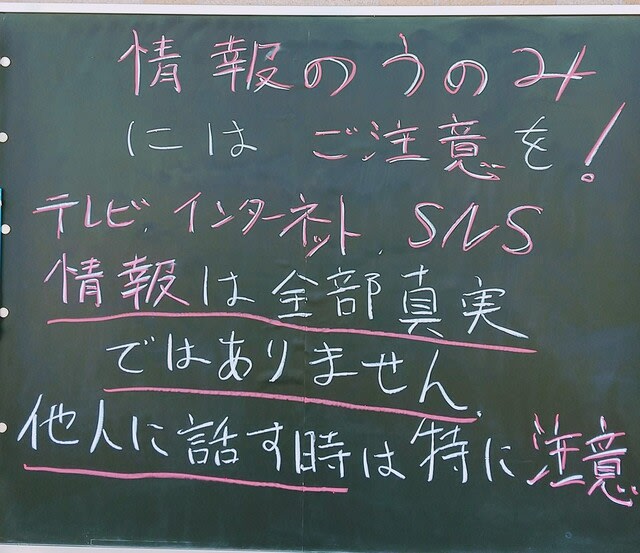 情報のうのみ
にはご注意を！
テレビ、インターネット、SNS
情報は全部真実
ではありません。
他人に話す時は特に注意